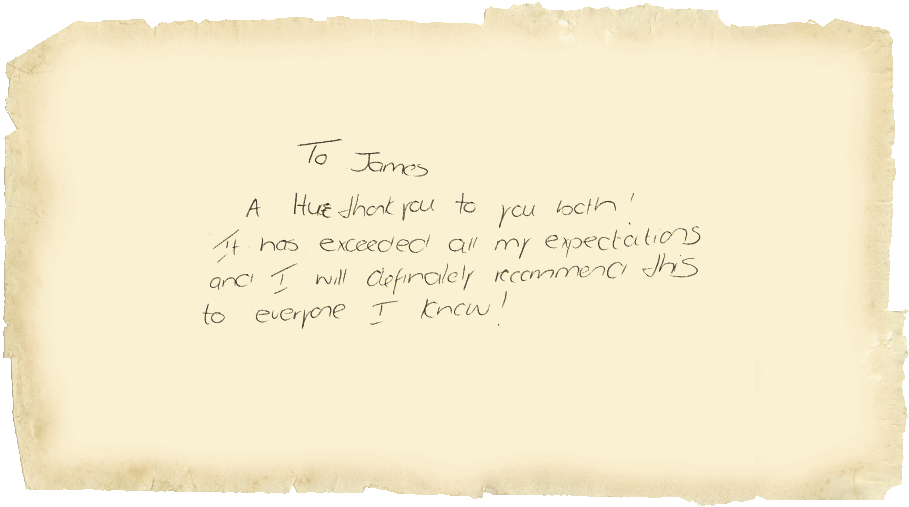 To James
A Huge thank you to you both!
It has exceeded all my expectations
and I will definately recommend this
to everyone I know!